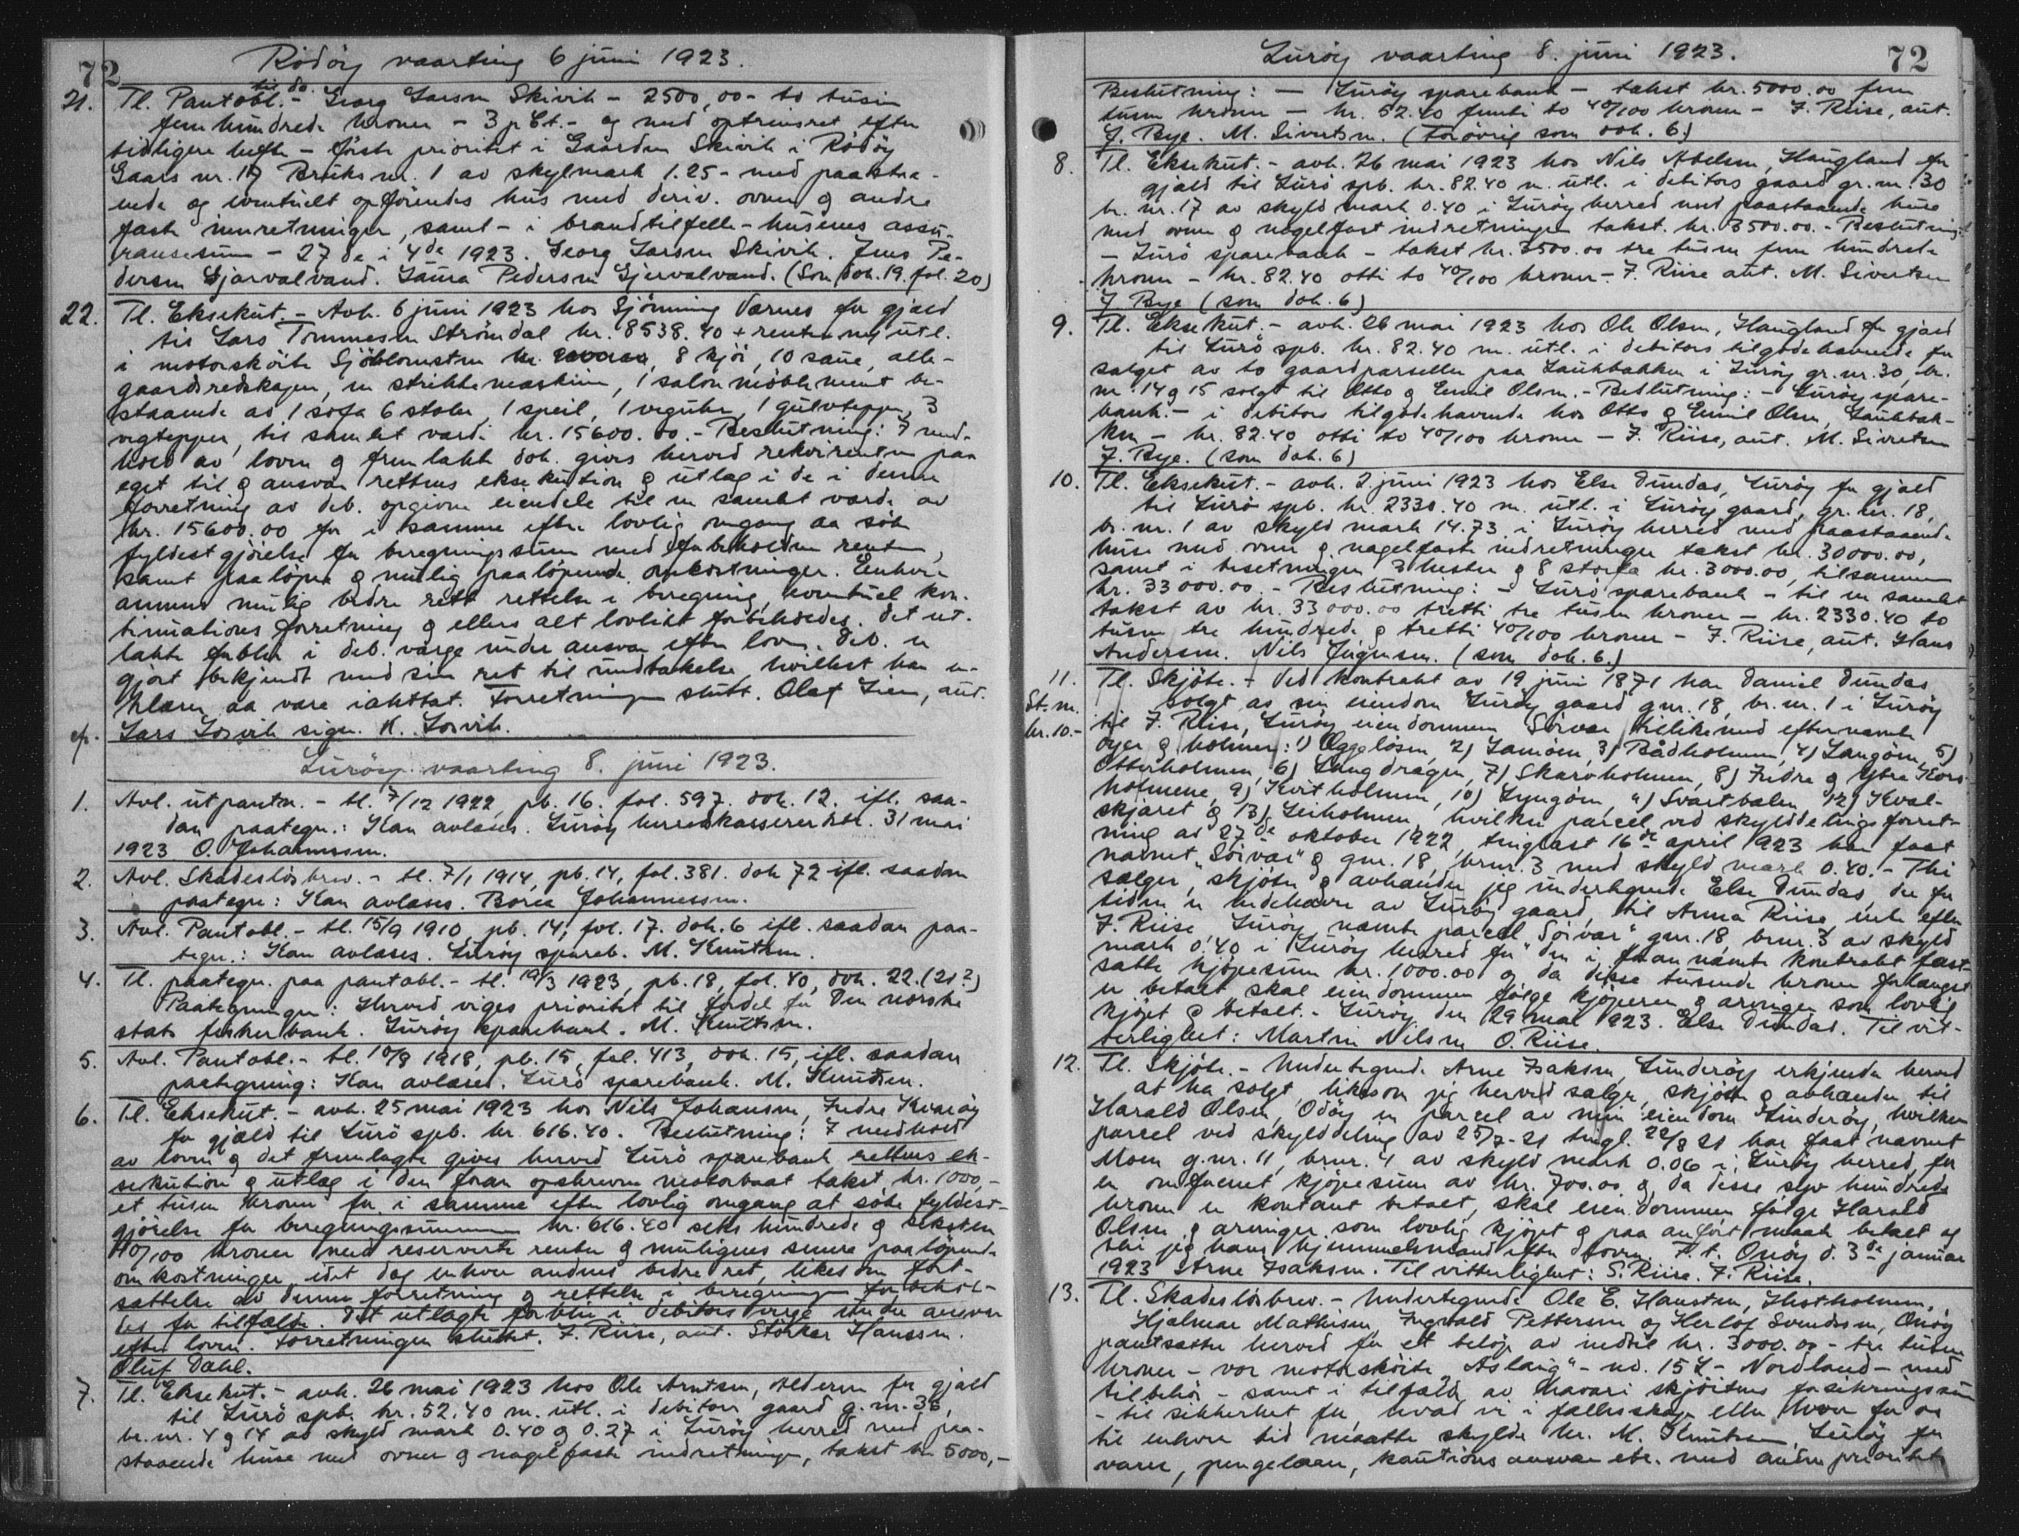 72
Rödöy vaarting 6 juni 1923.
21. Tl. Pantobl. til do. - Georg Larsen Skivik - 2500,00 - to tusin
fem hundrede kroner - 3 p Ct. - og med optrinsret efter
tidligere hefte - förste prioritet i Gaarden Skivik i Rödöy
Gaards nr. 17 Bruks nr. 1 av skylmark 1.25 - med paastaa-
ende og eventuelt opförendes hus med deriv. ovner og andre
faste innretninger, samt - i brandtilfelle - husenes assu-
ransesum - 27 de i 4de 1923. Georg Larsen Skivik. Jens Pe-
dersen Gjervalvand. Laura Pedersen Gjervalvand. (Som dok. 19. fol. 20)
22. Tl. Eksekut. - Avh. 6 juni 1923 hos Sjönning Værnes for gjæld
til Lars Tommesen Strömdal kr. 8538.40 + renter og utl.
i motorsköite Sjöblomsten, 8 kjör, 10 saue, alle
gaardsredskaper, en strikkemaskine, 1 salon möblement be-
staaende av 1 sofa 6 stoler, 1 speil, 1 veguhr, 1 gulvteppe, 3
vegtepper, til samlet værdi kr. 15600.00. - Beslutning: I med-
hold av loven og fremlakte dok. givis herved rekvirenten paa
eget til og ansvar rettens eksekution og utlæg i de i denne
forretning av deb. opgivne eiendele til en samlet værdi av
kr. 15600.00 for i samme efter lovlig omgang aa söke
fyldestgjörelse for beregningssum med forbeholdne renter,
samt paalöpne og mulig paalöpende omkostninger. Enhver
annens mulig bedre rett rettelse i beregning, eventuel kon-
tinuations forretning og ellers alt lovlikt forbeholdes. Det ut-
lakte forblir i deb. værge under ansvar efter loven. Deb. er
gjort bekjendt med sin ret til undtakelse hvilket han er-
klærer aa være iakttat. Forretningen slutt. Olaf Lien, aut.
ep. Lars Losvik sign. K. Losvik.
Luröy vaarting 8. juni 1923.
1. Avl. utpantn. - tl. 7/12 1922, pb. 16. fol. 597. dok. 12. ifl. saa-
dan paategn.: Kan avlæses. Luröy herredskassererktr. 31 mai
1923 O. Johannessen.
2. Avl. Skadeslösbrev. - tl. 7/1 1914, pb. 14, fol. 381. dok 72 ifl. saadan
paategn: Kan avlæses. Borea Johannessen.
3. Avl. Pantobl. - tl. 15/9 1910, pb. 14, fol. 17. dok. 6 ifl. saadan paa-
tegn.: Kan avlæses. Luröy spareb. M. Knutsen.
4. Tl. paategn. paa pantobl. - tl. 19/3 1923, pb. 18, fol. 40, dok. 22. (21?)
Paategninger: Herved viges prioritet til fordel for Den norske
stats fiskerbank. Luröy sparebank. M. Knutsen.
5. Avl. Pantobl. - tl. 10/9 1918, pb. 15, fol. 413, dok. 15, ifl. saadan
paategning: Kan avlæses. Lurö sparebank. M. Knutsen.
6. Tl. Eksekut. - avh. 25 mai 1923 hos Nils Johansen, Indre Kvaröy
for gjæld til Lurö spb. kr. 616.40. Beslutning: I medhold
av loven og det fremlagte gives herved Lurö sparebank rettens ek-
sekution og utlæg i den foran opskrevne motorbaat takst kr. 1000,-
et tusen kroner for i samme efter lovlig omgang at söke fyldest-
gjörelse for beregningssummen kr. 616.40 seks hundrede og seksten
40/100 kroner med reserverte renter og muligens senere paalöpende
omkostninger, idet dog enhver andens bedre ret, likesom fort-
sættelse av denne forretning og rettelse i beregningen forbehol-
des for tilfælde. Det utlagte forblir i debitors verge under ansvar
efter loven. Forretningen sluttet. J. Riise, aut. Störker Hanssen.
Oluf Dahl.
7. Tl. Eksekut. - avh. 26 mai 1923 hos Ole Arntsen, Alderen for gjæld
til Lurö spb. kr. 52.40 m. utl. i debitors gaard g.nr. 36,
br. nr. 4 og 14 av skyld mark 0.40 og 0.27 i Luröy herred med paa-
staaende huse med ovner og nagelfaste indretninger, takst kr 5000,-
Luröy vaarting 8. juni 1923.
72
Beslutning: - Luröy sparebank - takst kr. 5000.00 fem
tusen kroner - kr. 52.40 femti to 40/100 kroner - J. Riise, aut.
J. Bye. M. Sivertsen. (Forövrig som dok. 6.)
8. Tl. Eksekut. - avh. 26 mai 1923 hos Nils Abelsen, Haugland for
gjæld til Lurö spb. kr. 82.40 m. utl. i debitors gaard gr. nr. 30
br. nr. 17 av skyld mark 0.40 i Luröy herred med paastaaende huse
med ovner og nagelfast indretninger takst kr. 3500.00. - Beslutning:
- Lurö sparebank - takst kr. 3500.00 tre tusen fem hundrede
kroner - kr. 82.40 otti to 40/100 kroner - J. Riise aut. M. Sivertsen
J Bye (som dok. 6)
9. Tl. Eksekut. - avh. 26 mai 1923 hos Ole Olsen, Haugland for gjæld
til Lurö spb. kr. 82.40 m. utl. i debitors tilgodehavende for
salget av to gaardparseller paa Laukbakken i Luröy gr. nr. 30, br.
nr. 14 og 15 solgt til Otto og Emil Olsen. - Beslutning: - Luröy spare-
bank. - i debitors tilgodehavende hos Otto og Emil Olsen, Laukbak-
ken - kr. 82.40 otti to 40/100 kroner - J. Riise, aut. M. Sivertsen
J. Bye. (som dok. 6)
10. Tl. Eksekut. - avh. 2 juni 1923 hos Else Dundas, Luröy for gjæld
til Lurö spb. kr. 2330.40 m. utl. i Luröy gaard, gr. nr. 18,
br. nr. 1 av skyld mark 14.73 i Luröy herred med paastaaende
huse med ovner og nagelfaste indretninger takst kr. 30000.00,
samt i besetningen 3 hester og 8 storfæ kr. 3000.00, tilsammen
kr. 33000.00. - Beslutning: - Lurö sparebank - til en samlet
takst av kr. 33000.00 tretti tre tusen kroner - kr. 2330.40 to
tusen tre hundrede og tretti 40/100 kroner - J. Riise, aut. Hans
Andersen. Nils Ingensen. (som dok. 6.)
11. Tl. Skjöte. - Ved kontrakt av 19 juni 1871 har Daniel Dundas
St. m. solgt av sin eiendom Luröy gaard gnr. 18, br. nr. 1 i Luröy
kr. 10.- til J. Riise, Luröy eiendommen Sörvær tillikemed efternævnte
öyer og holmer: 1) Æggelösen, 2) Lamöen, 3) Rådholmen, 4) Langöen, 5)
Otterholmen, 6) Langdragen, 7) Skarvholmen, 8) Indre og Ytre Kors-
holmene, 9) Kvitholmen, 10) Lyngöen, 11) Svartbalen, 12) Kval-
skjæret og 13) Leiholmen, hvilken parcel ved skylddelingsforret-
ning av 27de oktober 1922, tinglæst 16de april 1923 har faat
navnet "Sörvær" og gnr. 18, brnr. 3 med skyld mark 0.40. - Thi
sælger, skjöter og avhænder jeg undertegnede Else Dundas, der for
tiden er indehaver av Luröy gaard, til Anna Riise, enke efter
J. Riise Luröy nævnte parcel "Sörvær" gnr. 18, brnr. 3 av skyld
mark 0,40 i Luröy herred for den i foran nævnte kontrakt fast-
satte kjöpesum kr. 1000.00 og da disse tusende kroner forlængst
er betalt skal eiendommen fölge kjöperen og arvinger som lovlig
kjöpt og betalt. - Luröy den 29 mai 1923. Else Dundas. Til vit-
terlighet: Martin Nilsen O. Riise.
12. Tl. Skjöte. - Undertegnede Arne Isaksen Sunderöy erkjender herved
at ha solgt, likesom jeg herved sælger, skjöter og avhænder til
Harald Olsen, Odöy en parcel av min eiendom Sunderöy, hvilken
parcel ved skylddeling av 25/7-21 tingl. 22/8 21 har faat navnet
Moen g.nr. 11, brnr. 4 av skyld mark 0.06 i Luröy herred, for
en omforenet kjöpesum av kr. 700.00 og da disse syv hundrede
kroner er kontant betalt, skal eiendommen fölge Harald
Olsen og arvinger som lovlig kjöpt og paa anfört maate betalt og
blir jeg hans hjemmelsmand efter loven. P. t. Onöy d. 3de januar
1923 Arne Isaksen. Til vitterlighet: S. Riise. J. Riise.
13. Tl. Skadeslösbrev. - Undertegnede Ole E. Hansten, Hestholmen,
Hjalmar Mathisen, Ingvald Pettersen og Herlof Svendsen, Onöy
pantsætter herved for et belöp av indtil kr. 3000.00 - tre tusen
kroner - vor motorsköite "Aslaug" - no. 157 - Nordland - med
tilbehör - samt i tilfælde av havari skjöitens forsikringssum
- til sikkerhet for, hvad vi i fællesskap eller hver for os
til enhver tid maatte skylde hr. M. Knutsen Luröy for
varer, pengelaan, kautionsansvar etc. med anden prioritet